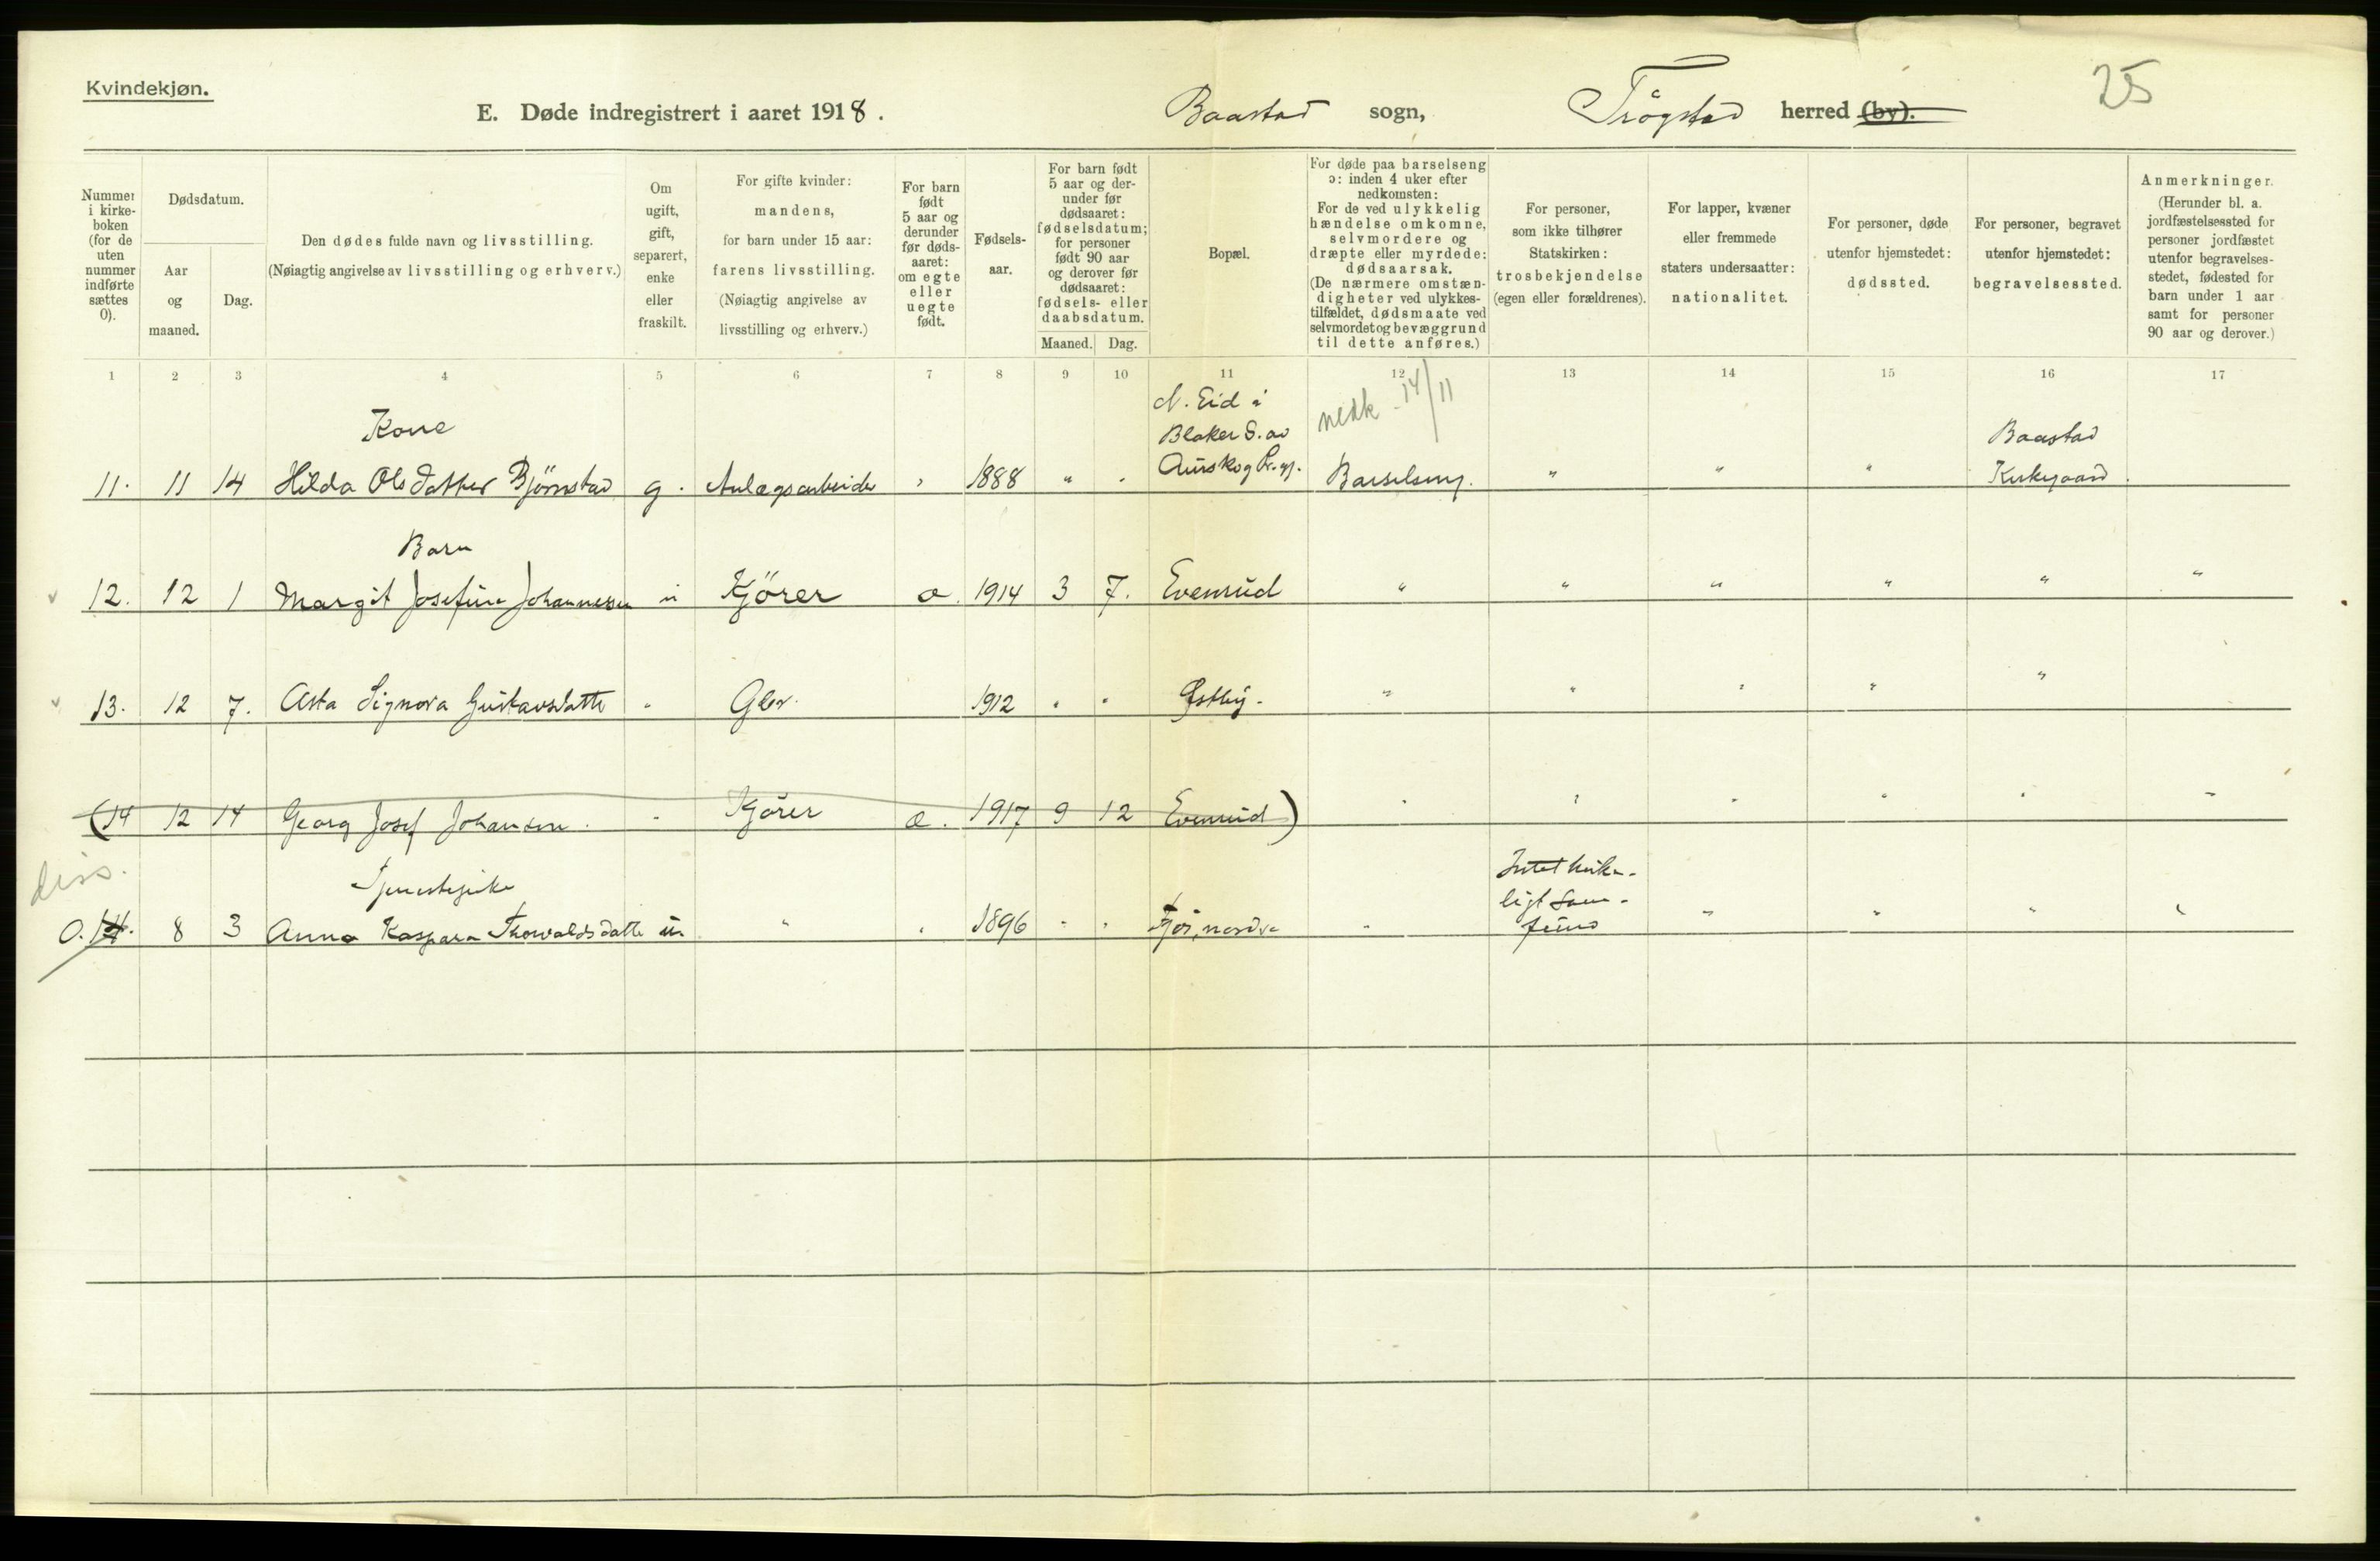 Kvindekjøn.
25
E. Døde indregistrert i aaret 1918. Baastad sogn, Trøgstad herred (by).
Nummer i kirkeboken (for de uten nummer indførte sættes 0).
Dødsdatum.
Aar og maaned.
Dag.
Den dødes fulde navn og livsstilling.
(Nøiagtig angivelse av livsstilling og erhverv.)
Om ugift, gift, separert, enke eller fraskilt.
For gifte kvinder: mandens, for barn under 15 aar: farens livsstilling. (Nøiagtig angivelse av livsstilling og erhverv.)
For barn født 5 aar og derunder før dødsaaret: om egte eller uegte født.
Fødselsaar.
For barn født 5 aar og derunder før dødsaaret: fødselsdatum; for personer født 90 aar og derover før dødsaaret: fødsels- eller daabsdatum.
Maaned. Dag.
Bopæl.
For døde paa barselseng ɔ: inden 4 uker efter nedkomsten: For de ved ulykkelig hændelse omkomne, selvmordere og dræpte eller myrdede: dødsaarsak. (De nærmere omstændigheter ved ulykkestilfældet, dødsmaate ved selvmordet og bevæggrund til dette anføres.)
For personer, som ikke tilhører Statskirken: trosbekjendelse (egen eller forældrenes).
For lapper, kvæner eller fremmede staters undersaatter: nationalitet.
For personer, døde utenfor hjemstedet: dødssted.
For personer, begravet utenfor hjemstedet: begravelsessted.
Anmerkninger. (Herunder bl. a. jordfæstelsessted for personer jordfæstet utenfor begravelsesstedet, fødested for barn under 1 aar samt for personer 90 aar og derover.)
1 2 3 4 5 6 7 8 9 10 11 12 13 14 15 16 17
Kone
N. Eid i Blaker S. av Aurskog Pr.gj.
nedk. 14/11
Baastad Kirkegaard.
11. 11 14 Hilda Olsdatter Bjørnstad g. Anlægsarbeider " 1888 " " Barselseng. " " "
Barn
12. 12 1 Margit Josefine Johannesen u Kjörer æ. 1914 3 7. Evenrud " " " " " "
13. 12 7. Asta Signora Gustavsdatter " Gbr. 1912 " " Østby. " " " " "
(14 12 14 Georg Josef Johansen. " Kjörer æ. 1917 9 12 Evenrud) " " " " " "
diss.
Tjenestepike
Intet kirkeligt Samfund
0. 14. 8 3 Anna Kaspara Thorvaldsdatter u. " " 1896 " " nordre " " " " "